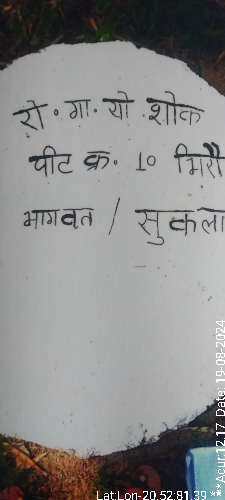 रो.गा.यो शोक
पीट क्र. 10 मिरौ
भागवत / सुकला
Lat Lon-20.52.81,39
**Acur:12.17 Date: 19-08-2024